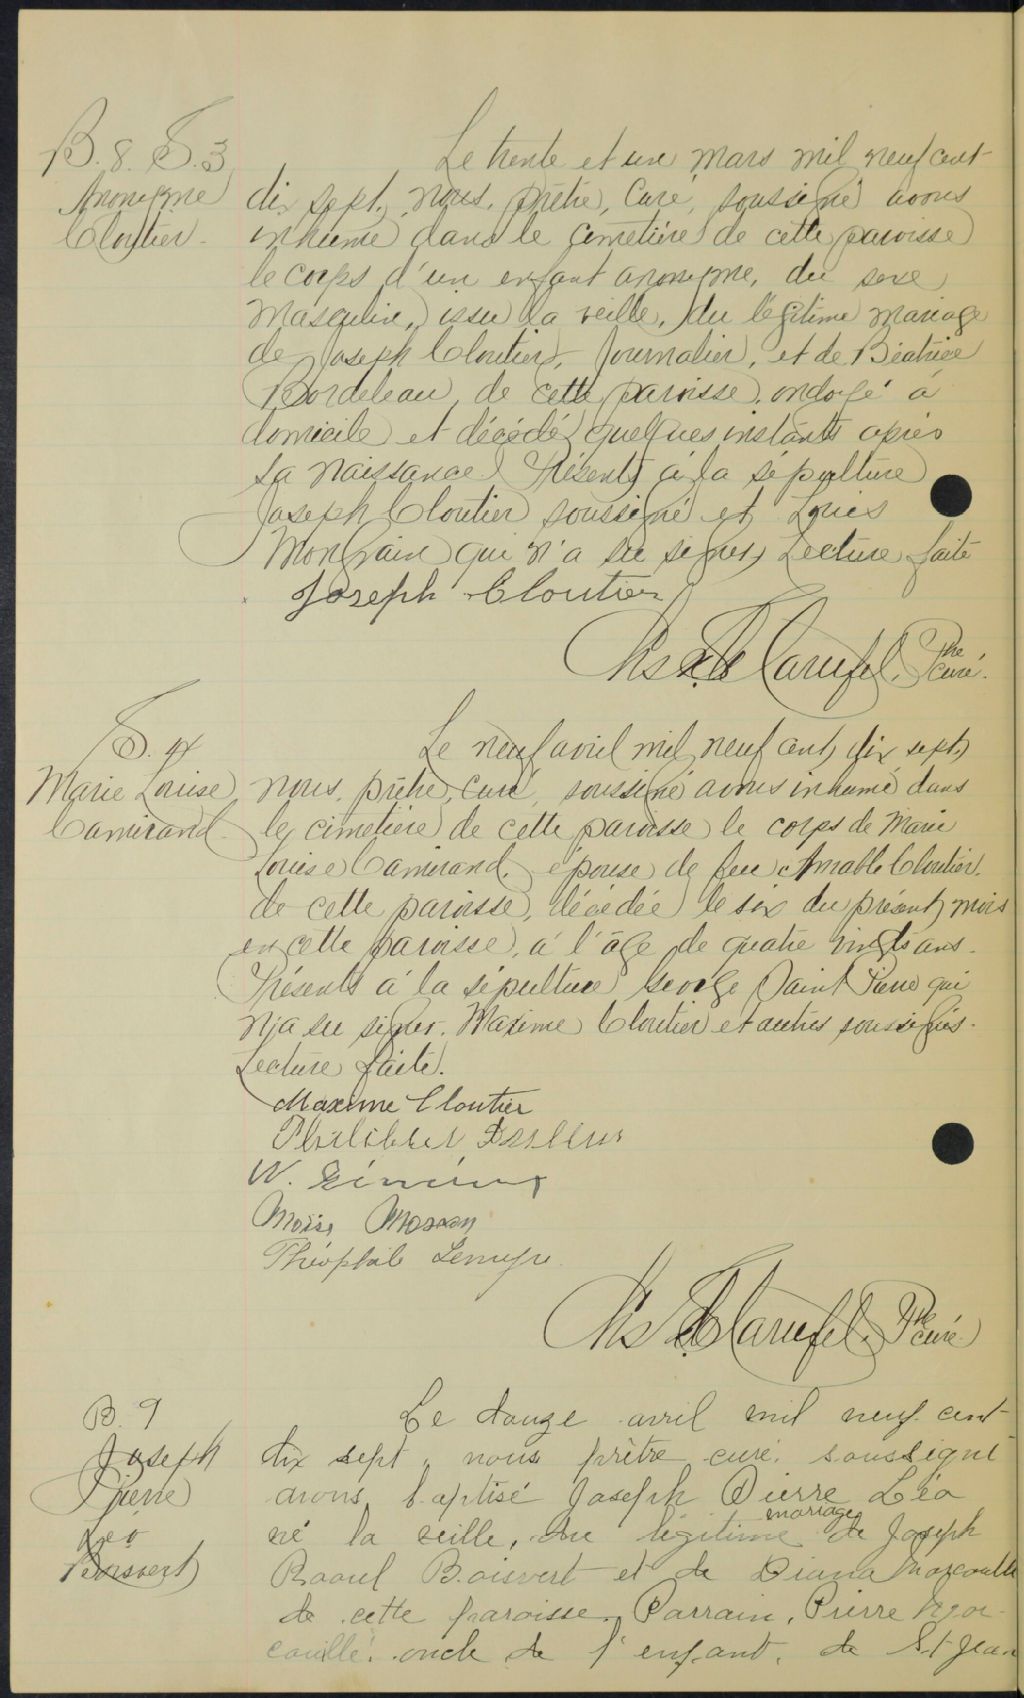 B. 8. S. 3
Anonyme
Cloutier
Le trente et un mars mil neuf cent
dix sept, nous, prêtre, curé, soussigné avons
inhumé dans le cimetière de cette paroisse
le corps d'un enfant anonyme, du sexe
masculin, issu la veille, du légitime mariage
de Joseph Cloutier, journalier, et de Béatrice
Bordeleau, de cette paroisse, ondoyé à
domicile et décédé quelques instants après
sa naissance. Présents à la sépulture
Joseph Cloutier soussigné et Louis
Mongrain qui n'a su signer, Lecture faite
Joseph Cloutier
Chs Ed Clarufel, Ptre curé.
S. 4
Marie Louise
Camirand
Le neuf avril mil neuf cent dix sept,
nous, prêtre, curé, soussigné avons inhumé dans
le cimetière de cette paroisse le corps de Marie
Louise Camirand, épouse de feu Amable Cloutier,
de cette paroisse, décédée le six du présent mois
en cette paroisse, à l'âge de quatre vingts ans.
Présents à la sépulture George Saint Pierre qui
n'a su signer, Maxime Cloutier et autres soussignés.
Lecture faite.
Maxime Cloutier
W.
Moïse Masson
Théophile Lemyre
Ptre curé
B. 9
Joseph
Pierre
Léo
Boisvert
Le douze avril mil neuf cent
dix sept, nous prêtre curé, soussigné
avons baptisé Joseph Pierre Léo
né la veille, du légitime mariage de Joseph
Raoul Boisvert et de Diana Marcouille
de cette paroisse. Parrain, Pierre Mar-
couillé, oncle de l'enfant, de St Jean